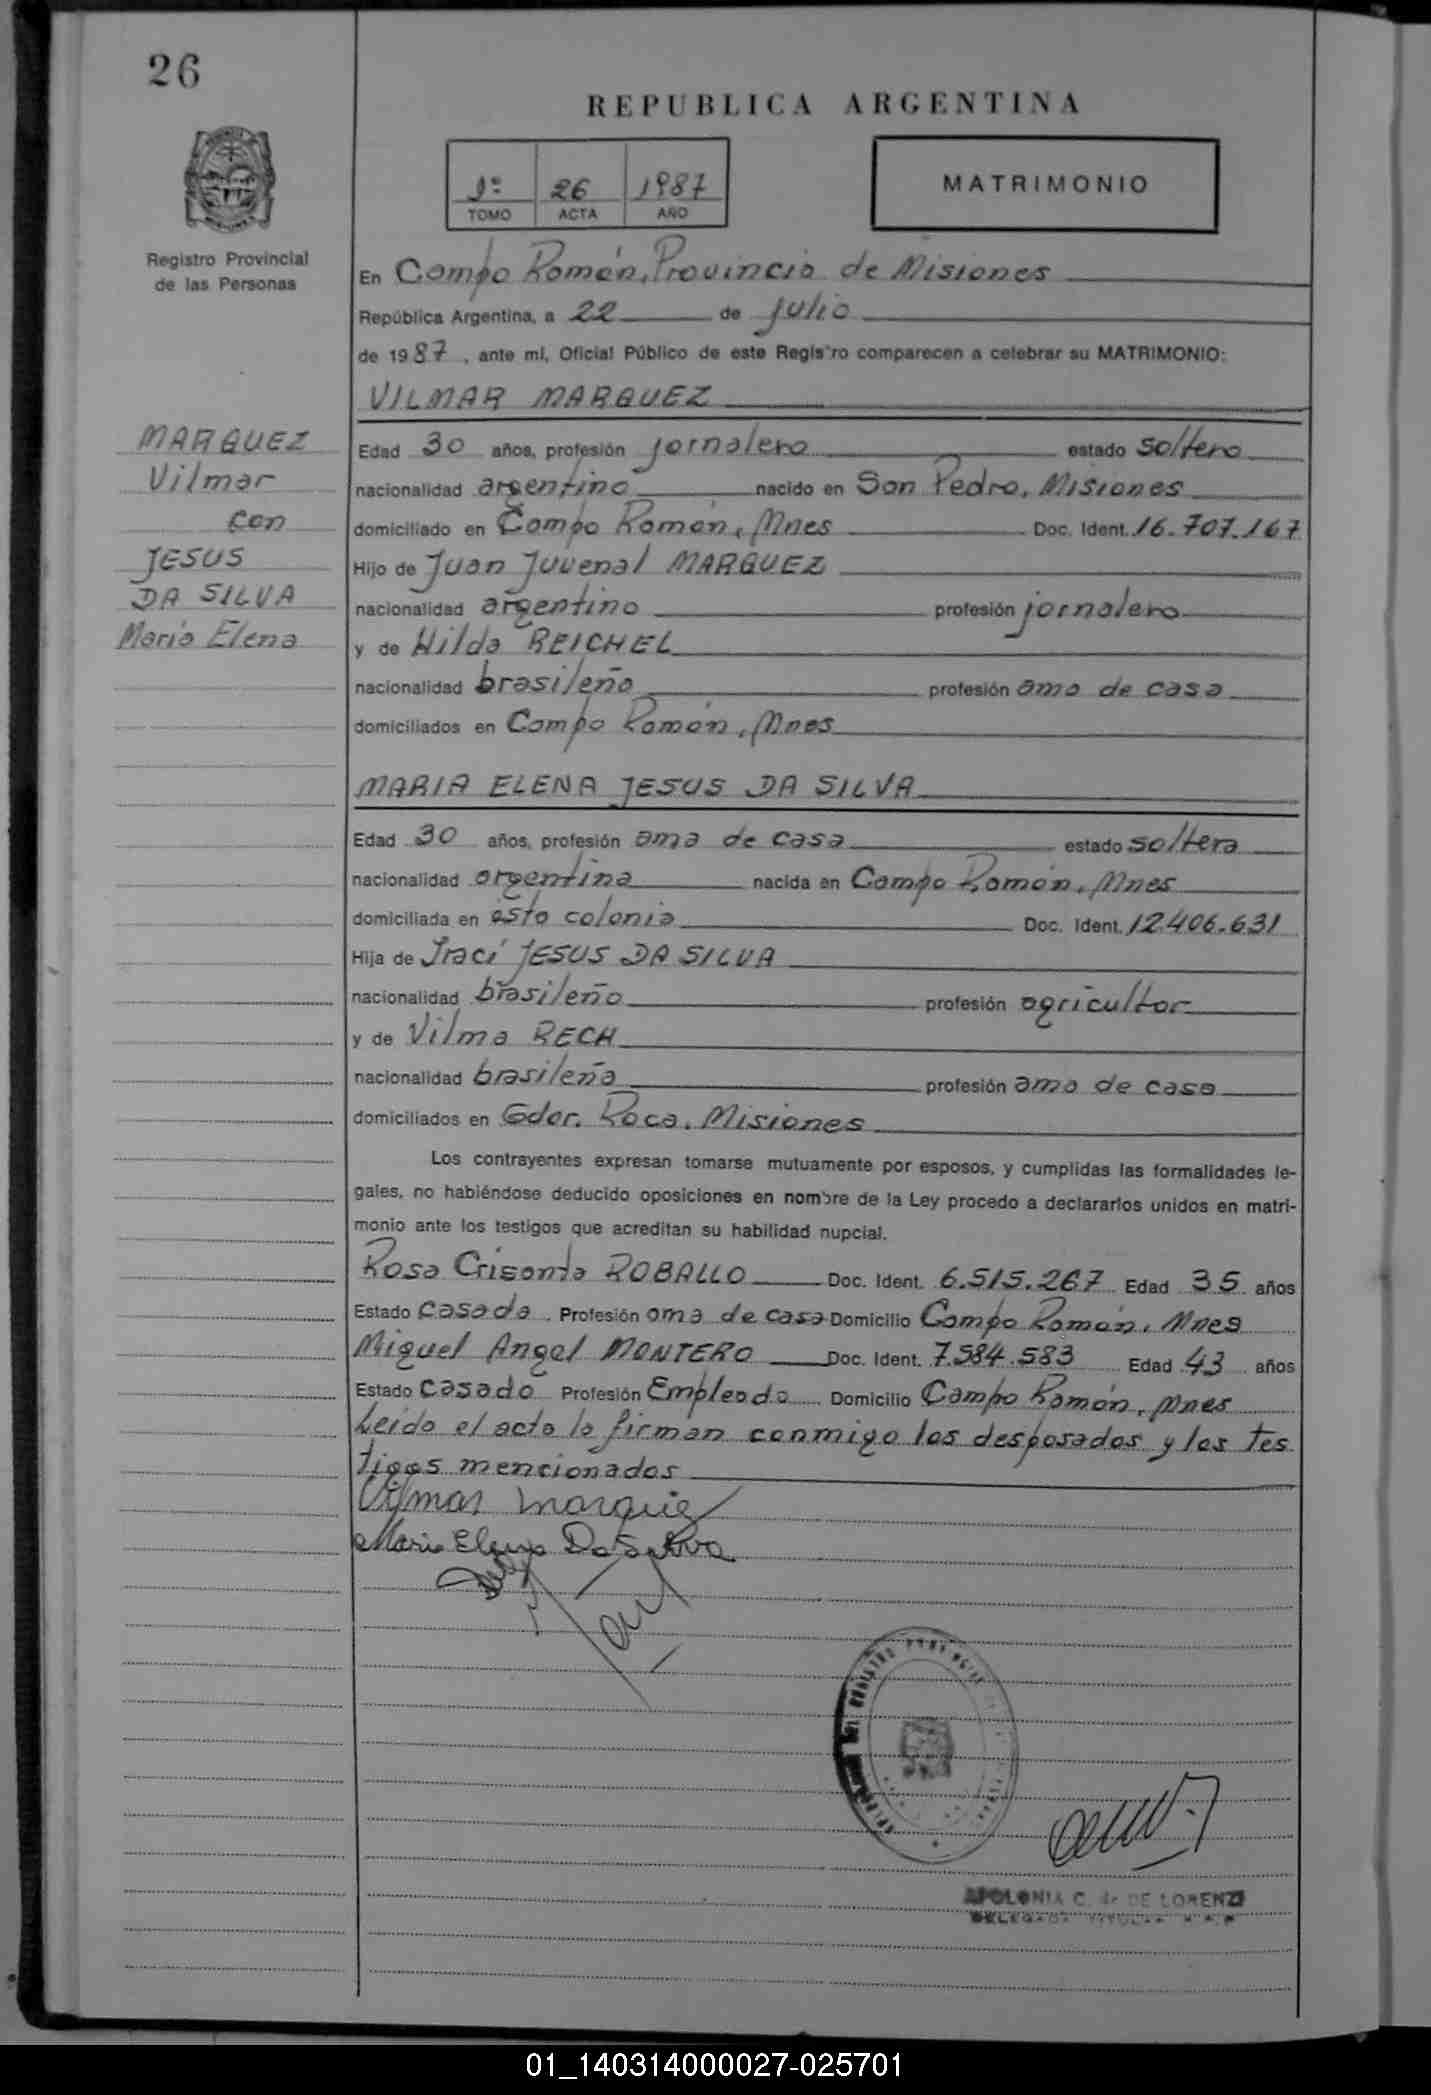 26
REPUBLICA ARGENTINA
1º 26 1987
TOMO ACTA AÑO
MATRIMONIO
Registro Provincial
de las Personas
En Campo Ramón, Provincia de Misiones
República Argentina, a 22 de julio
de 1987, ante mí, Oficial Público de este Registro comparecen a celebrar su MATRIMONIO:
VILMAR MARQUEZ
MARQUEZ
Vilmar
con
JESUS
DA SILVA
María Elena
Edad 30 años, profesión jornalero estado soltero
nacionalidad argentino nacido en San Pedro, Misiones
domiciliado en Campo Ramón, Mnes Doc. Ident. 16.707.167
Hijo de Juan Juvenal MARQUEZ
nacionalidad argentino profesión jornalero
y de Hilda REICHEL
nacionalidad brasileña profesión ama de casa
domiciliados en Campo Ramón, Mnes
MARIA ELENA JESUS DA SILVA
Edad 30 años, profesión ama de casa estado soltera
nacionalidad argentina nacida en Campo Ramón, Mnes
domiciliada en ésta colonia Doc. Ident. 12.406.631
Hija de Iraci JESUS DA SILVA
nacionalidad brasileño profesión agricultor
y de Vilma RECH
nacionalidad brasileña profesión ama de casa
domiciliados en Gdor. Roca, Misiones
Los contrayentes expresan tomarse mutuamente por esposos, y cumplidas las formalidades le-
gales, no habiéndose deducido oposiciones en nombre de la Ley procedo a declararlos unidos en matri-
monio ante los testigos que acreditan su habilidad nupcial.
Rosa Crisanta ROBALLO Doc. Ident. 6.515.267 Edad 35 años
Estado casada. Profesión ama de casa Domicilio Campo Ramón, Mnes
Miguel Angel MONTERO Doc. Ident. 7.584.583 Edad 43 años
Estado casado Profesión Empleado Domicilio Campo Ramón, Mnes
Leído el acta la firman conmigo los desposados y los tes
tigos mencionados
Vilmar Marquez
Maria Elena Da Silva
APOLONIA C. de DE LORENZI
DELEGADA TITULAR R.P.P
01_140314000027-025701